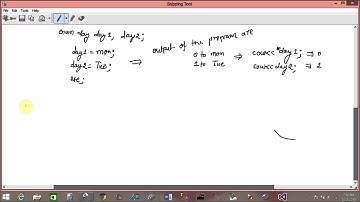 Snipping Tool
enum day day1, day2;
day1 = mon;
day2 = Tue;
⇒
output of the program are
0 to mon
1 to Tue
⇒ cout<< day1; ⇒ 0
cout<< day2; ⇒ 1